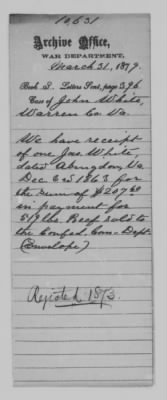 10631
Archive Office,
WAR DEPARTMENT,
March 31, 1879.
Book S. Letters Sent, page 396
Case of John White,
Warren Co. Va.
We have receipt
of one Jas. White,
dated Abingdon, Va
Dec 6 1863 for
the sum of $207 60
in payment for
519 lbs. Beef sold to
the Confed. Com. Dept.
(Envelope)
Rejected 1873.